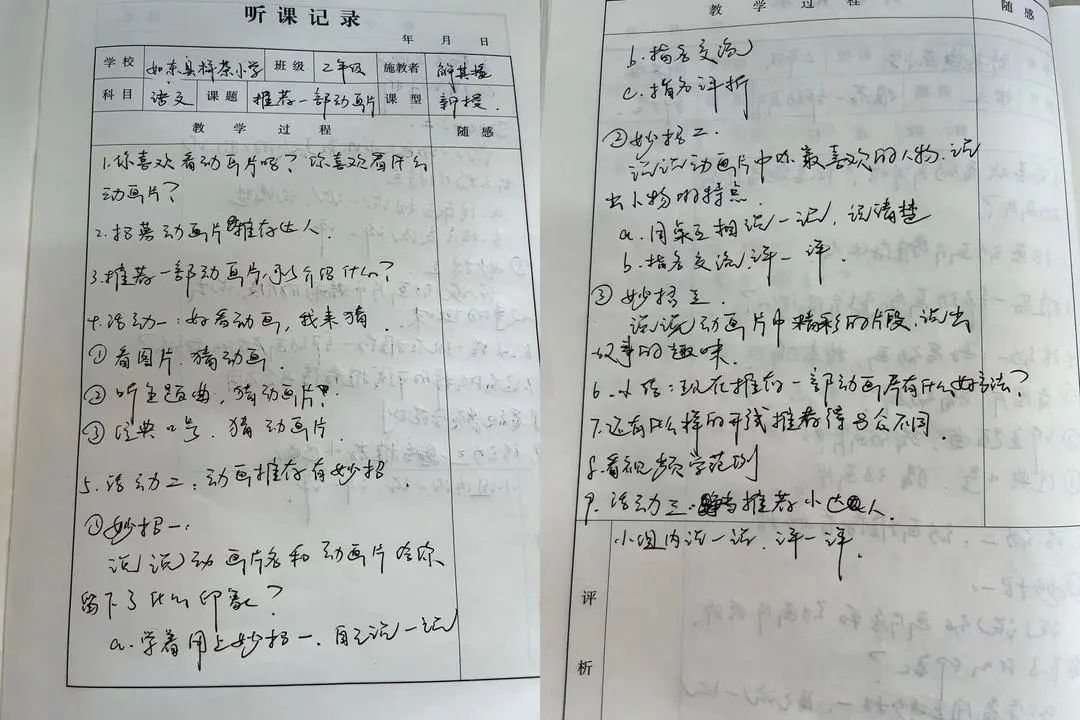 听课记录
年 月 日
学校 如东县栟茶小学 班级 二年级 施教者
科目 语文 课题 推荐一部动画片 课型 新授.
教学过程 随感
1.你喜欢看动画片吗？你喜欢看什么
动画片？
2.招募动画片推荐达人.
3.推荐一部动画片,介绍什么？
4.活动一：好看动画,我来猜.
①看图片.猜动画.
②听主题曲,猜动画片.
③经典口号.猜动画片.
5.活动二：动画推荐有妙招.
①妙招一：
说说动画片名和动画片给你
留下了什么印象？
a.学着用上妙招一.自己说一说
教学过程 随感
b.指名交流
c.指名评析
②妙招二.
说说动画片中你最喜欢的人物.说
出人物的特点.
a.同桌互相说一说,说清楚
b.指名交流,评一评.
③妙招三.
说说动画片中精彩的片段.说出
故事的趣味.
6.小结：现在推荐一部动画片有什么好方法？
7.还有什么样的开头推荐得与众不同.
8.看视频学范例
9.活动三.争当推荐小达人.
小组内说一说.评一评.
评
析